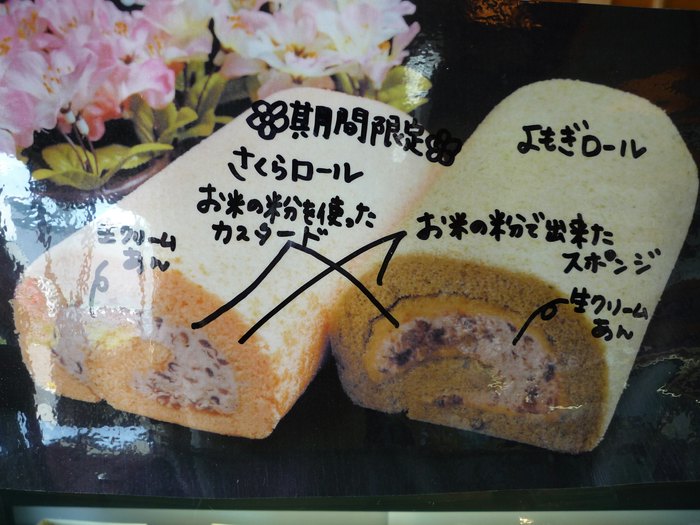 期間限定
さくらロール
お米の粉を使った
カスタード
生クリーム
あん
よもぎロール
お米の粉で出来た
スポンジ
生クリーム
あん